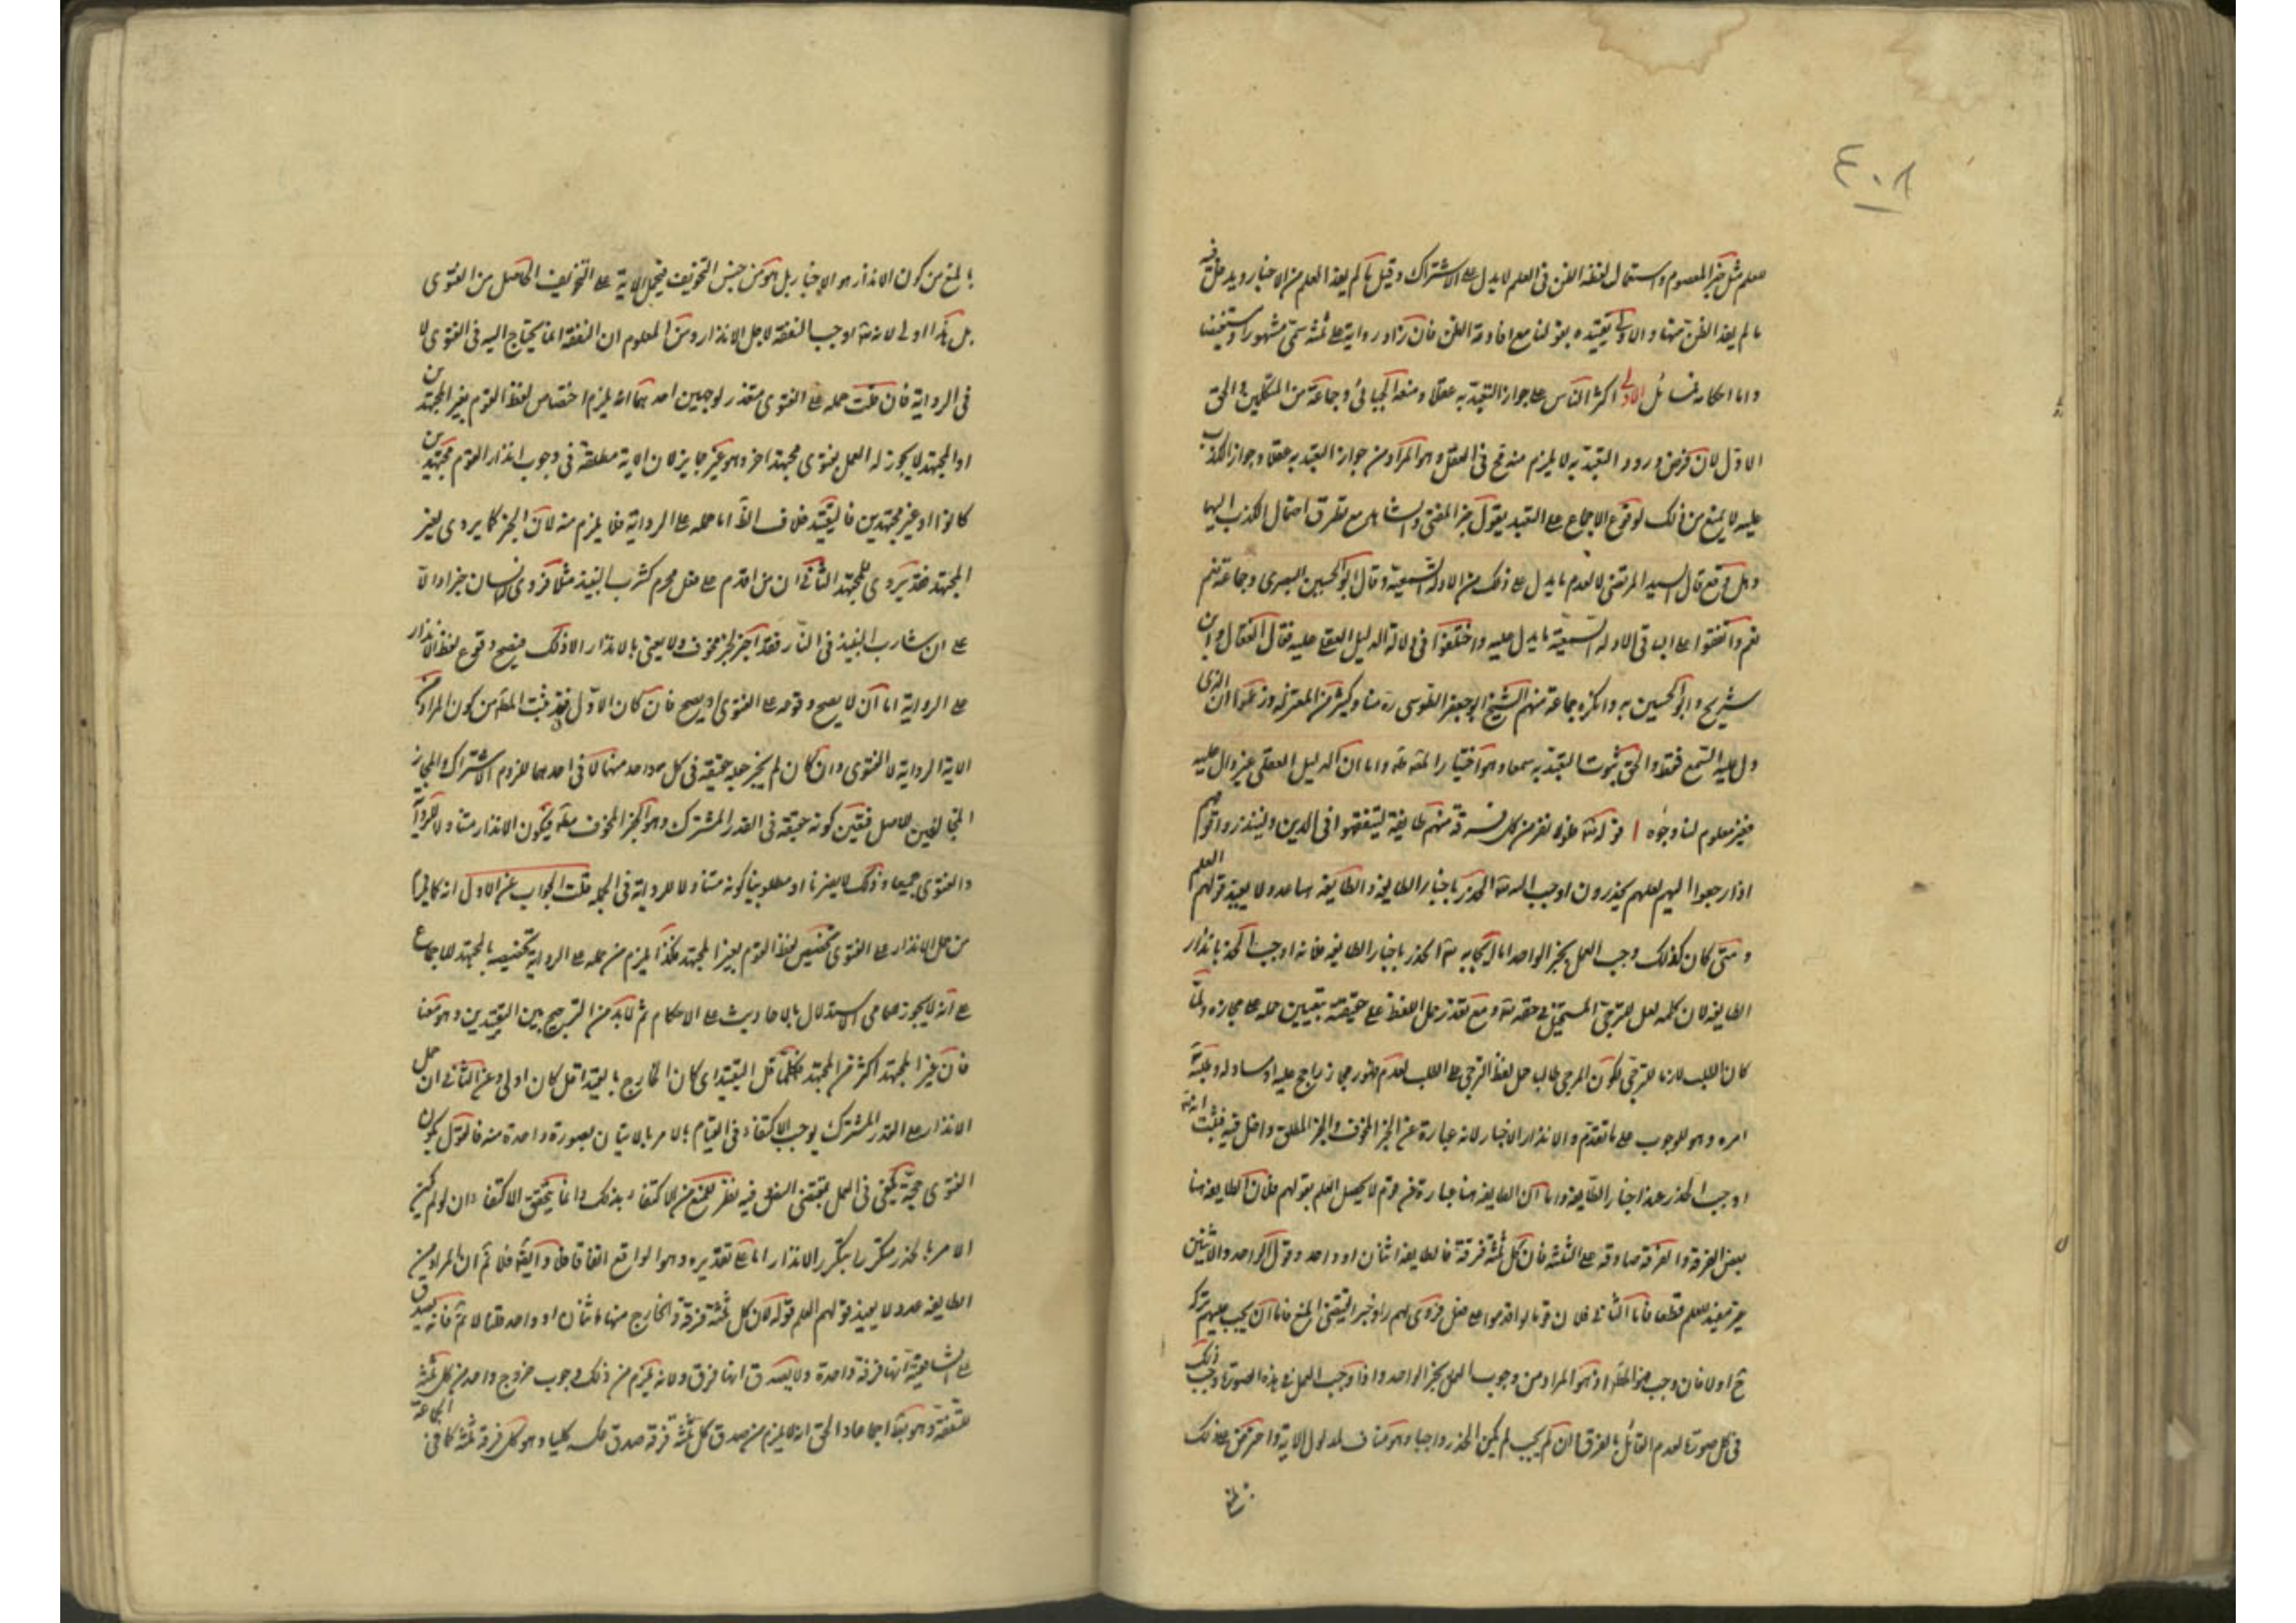 ٤٠٨
معلم مثل خبر المعصوم واستعمال لفظة الظن في العلم لا يدل على الاشتراك وقيل ما لم يفد العلم من الاخبار ويدخل فيه
ما لم يفد الظن منها والاولى تقييده بقولنا مع افادته الظن فان زاد رواية على ثلثة سمى مشهورا ومستفيضا
واما احكامه فمسائل الاولى اكثر الناس على جواز التعبد به عقلا ومنعه الجبائي وجماعة من المتكلمين والحق
الاول لان فرض ورود التعبد به لا يلزم منه قبح في العقل وهو المراد من جواز التعبد به عقلا وجواز الكذب
عليه لا يمنع من ذلك لوقوع الاجماع على التعبد بقول خبر المفتي والشاهد مع تطرق احتمال الكذب اليهما
وهل وقع قال السيد المرتضى لا لعدم ما يدل على ذلك من الادلة السمعية وقال ابو الحسين البصري وجماعة نعم
نعم واتفقوا على ان في الادلة السمعية ما يدل عليه واختلفوا في دلالة الدليل العقلي عليه فقال القفال وابن
شريح وابو الحسين به وانكره جماعة منهم الشيخ ابو جعفر الطوسي ره منا وكثير من المعتزلة وزعموا ان الذي
دل عليه السمع فقط والحق ثبوت التعبد به سمعا وهو اختيار المصنف واما ان الدليل العقلي غير دال عليه
فغير معلوم لنا وجوه ا قوله تعالى فلولا نفر من كل فرقة منهم طايفة ليتفقهوا في الدين ولينذروا قومهم
اذا رجعوا اليهم لعلهم يحذرون اوجب الله تعالى الحذر باخبار الطايفة والطايفة هنا عدد لا يفيد قولهم العلم
ومتى كان كذلك وجب العمل بخبر الواحد اما ايجابه تعالى الحذر باخبار الطايفة فلانه اوجب الحذر بانذار
الطايفة لان كلمة لعل للترجي المستحيل في حقه تعالى ومع تعذر حمل اللفظ على حقيقته يتعيين حمله على مجازه ولما
كان الطلب لازما للترجي لكون المرجي طالبا حمل لفظ الترجي على الطلب لعدم ظهور مجاز راجح عليه او مساو له وطلبه تعالى
امره وهو للوجوب على ما تقدم والانذار الاخبار لانه عبارة عن الخبر المخوف والخبر المطلق داخل فيه فثبت انه تعالى
اوجب الحذر عند اخبار الطايفة واما ان الطايفة هنا عبارة عن قوم لا يحصل العلم بقولهم فلان الطايفة هنا
بعض الفرقة والفرقة صادقة على الثلثة فان كل ثلثة فرقة فالطايفة اثنان او واحد وقول الواحد والاثنين
غير مفيد للعلم قطعا فاما الثاني فلان قوما لو اقدموا على فعل فروى لهم راو خبرا يقتضي المنع فاما ان يجب عليهم تركه
ح او لا فان وجب فهو المطلوب اذ هو المراد من وجوب العمل بخبر الواحد واذا وجب العمل في هذه الصورة وجب ذلك
في كل صورة لعدم القائل بالفرق وان لم يجب لم يكن الحذر واجبا وهو مناف لمدلول الآية واعترض على ذلك
بالمنع من كون الانذار هو الاخبار بل هو من جنس التخويف فيحمل الآية على التخويف الحاصل من الفتوى
بل هذا اولى لانه تعالى اوجب التفقه لاجل الانذار ومن المعلوم ان التفقه انما يحتاج اليه في الفتوى لا
في الرواية فان قلت حمله على الفتوى متعذر لوجهين احدهما انه يلزم اختصاص لفظ القوم بغير المجتهدين
اذ المجتهد لا يجوز له العمل بفتوى مجتهد اخر وهو غير جايز لان الآية مطلقة في وجوب انذار القوم مجتهدين
كانوا او غير مجتهدين فالتقييد خلاف الظ اما حمله على الرواية فلا يلزم منه لان الخبر كما يروى لغير
المجتهد فقد يروى للمجتهد الثاني ان من اقدم على فعل محرم كشرب النبيذ مثلا فروى انسان خبرا دالا
على ان شارب النبيذ في النار فقد اخبر بخبر مخوف ولا يعنى بالانذار الا ذلك فيصح وقوع لفظ الانذار
على الرواية اما ان لا يصح وقوعه على الفتوى او يصح فان كان الاول فقد ثبت المط من كون المراد من
الآية الرواية لا الفتوى وان كان لم يجز جعله حقيقة في كل واحد منهما لا في احدهما للزوم الاشتراك والمجاز
المخالفين للاصل فتعين كونه حقيقة في القدر المشترك وهو الخبر المخوف مط فيكون الانذار متناولا للرواية
والفتوى جميعا وذلك لا يضرنا اذ مطلوبنا كونه متناولا للرواية في الجملة قلت الجواب عن الاول انه كما يلزم
من حمل الانذار على الفتوى تخصيص لفظ القوم بغير المجتهد فكذا يلزم من حمله على الرواية تخصيصه بالمجتهد للاجماع
على انه لا يجوز للعامي الاستدلال بالاحاديث على الاحكام ثم لا بد من الترجيح بين التقييدين وهو معنا
فان غير المجتهد اكثر من المجتهد فكلما قل التقييد اي كان الخارج بالتقييد اقل كان اولى وعن الثاني ان حمل
الانذار على القدر المشترك يوجب الاكتفاء في القيام بالامر بالاتيان بصورة واحدة منه فالقول بكون
الفتوى حجة يكفي في العمل بمقتضى النص فيه نظر للمنع من الاكتفاء بذلك وانما يتحقق الاكتفاء ان لو لم يكن
الامر بالحذر متكررا بتكرر الانذار اما على تقديره وهو الواقع اتفاقا فلا وايضا فلا نم ان المراد من
الطايفة عدد لا يفيد قولهم العلم قوله لان كل ثلثة فرقة والخارج منها اثنان او واحد قلنا لا نم فانه يصدق
على الشافعية انها فرقة واحدة ولا يصدق انها فرق ولانه يلزم من ذلك وجوب خروج واحد من كل ثلثة
للتفقه وهو بط اجماعا والحق انه لا يلزم من صدق كل ثلثة فرقة صدق عكسه كليا وهو كل فرقة ثلثة كافي الجماعة